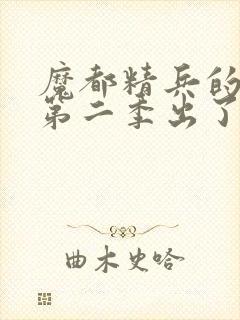 魔都精兵的
第二季出了
曲木史哈